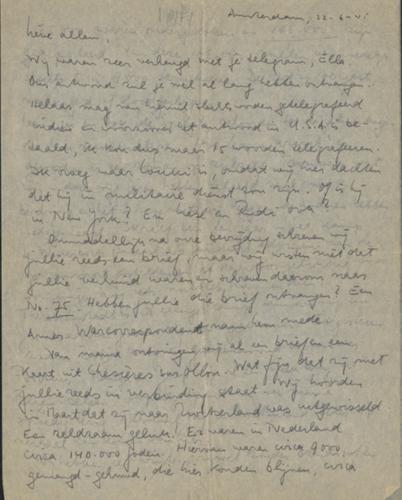 Amsterdam, 22-6-45
Lieve allen,
Wij waren zeer verheugd met je telegram, Ella.
Ons antwoord zul je wel al lang hebben ontvangen.
Helaas mag van hieruit slechts worden getelegrafeerd
indien en voorzoover het antwoord in U.S.A. is be-
taald, ik kon dus maar 15 woorden telegrafeeren.
Ik vroeg waar is, omdat wij hier dachten
dat hij in militaire dienst zou zijn. Of is hij
in New York? En en Rudi ook?
Onmiddellijk na onze bevrijding schreven wij
jullie reeds een brief, maar wij wisten niet dat
jullie verhuisd waren en schreven daarom naar
No. 75. Hebben jullie die brief ontvangen? Een
Amer. Warcorrespondent nam hem mede.
Van ontvingen wij al en brief en een
Kaart uit Chesières sur Ollon. Wat fijn dat zij met
jullie reeds in verbinding staat. Wij hoorden
in Maart dat zij naar Zwitserland was uitgewisseld
Een zeldzaam geluk. Er waren in Nederland
circa 140.000 joden. Hiervan waren circa 9000
gemengd-gehuwd, die hier konden blijven, circa